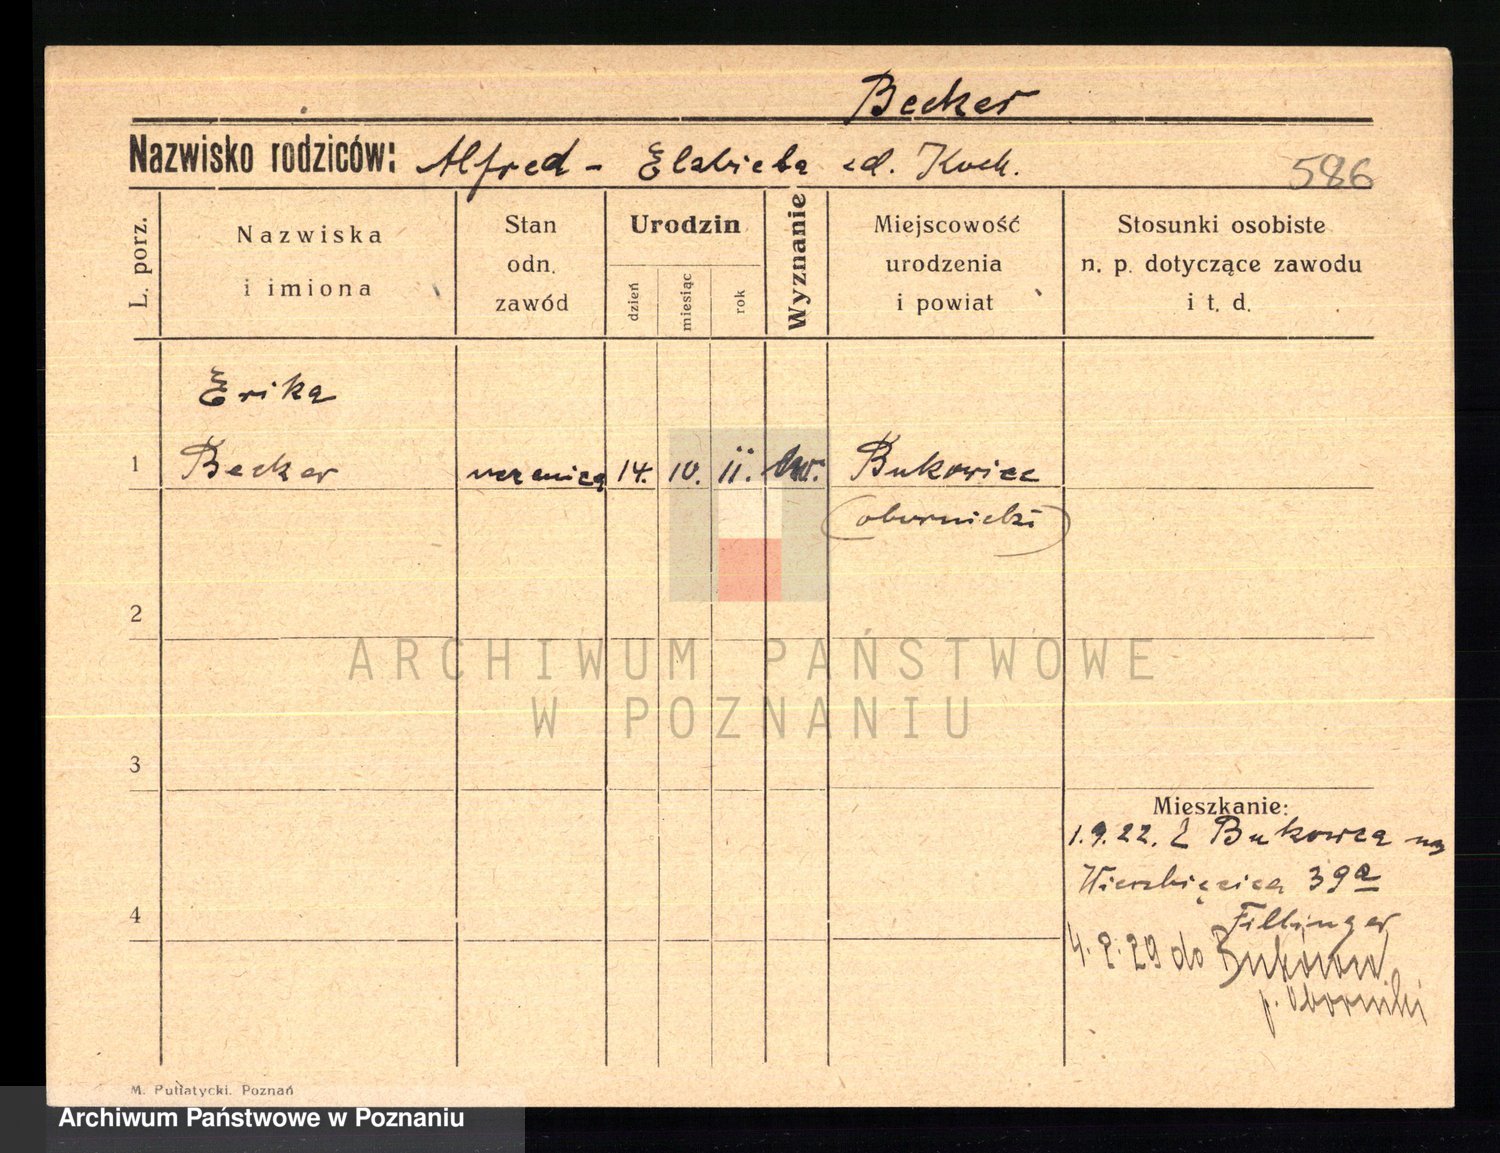 Becker
Nazwisko rodziców: Alfred - Elzbieta zd. Koch.
586
L. porz.
Nazwiska
i imiona
Stan
odn.
zawód
Urodzin
dzień
miesiąc
rok
Wyznanie
Miejscowość
urodzenia
i powiat
Stosunki osobiste
n. p. dotyczące zawodu
i t. d.
Erika
1 Becker uczenica 14. 10. 11. ew. Bukowiec
(obornicki)
2
ARCHIWUM PAŃSTWOWE
W POZNANIU
3
Mieszkanie:
1.9.22. Z Bukowca na
Wierzbięcica 39a
4
Fillinger
4. 2. 29 do Bukowca
p. Oborniki
M. Putiatycki. Poznań
Archiwum Państwowe w Poznaniu